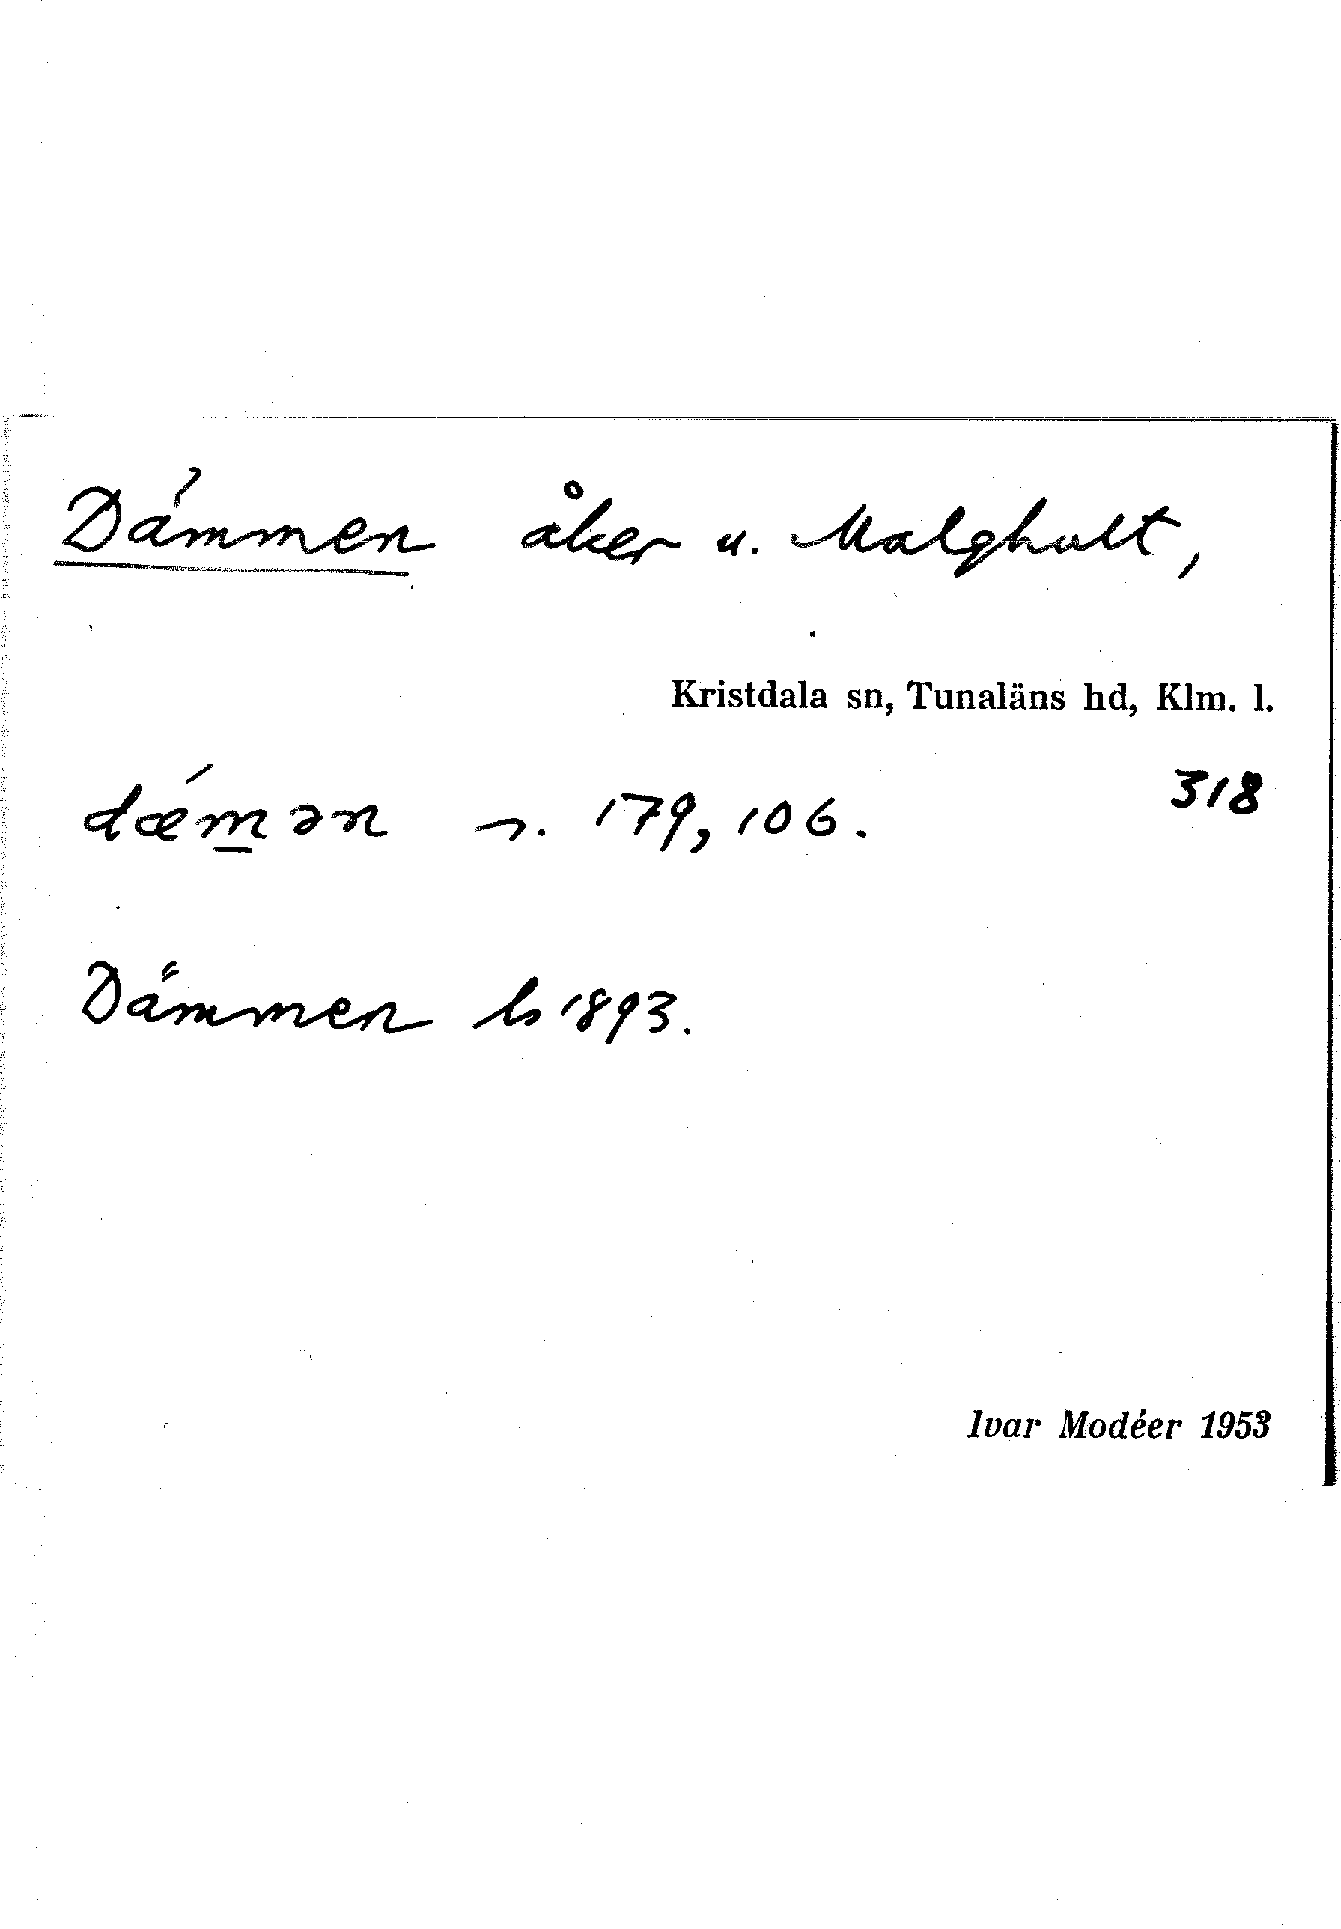 Dämmen åker u. Malghult,
Kristdala sn, Tunaläns hd, Klm. l.
318
dæ´m̲ən s. 179, 106.
Dämmen ls 1893.
Ivar Modéer 1953